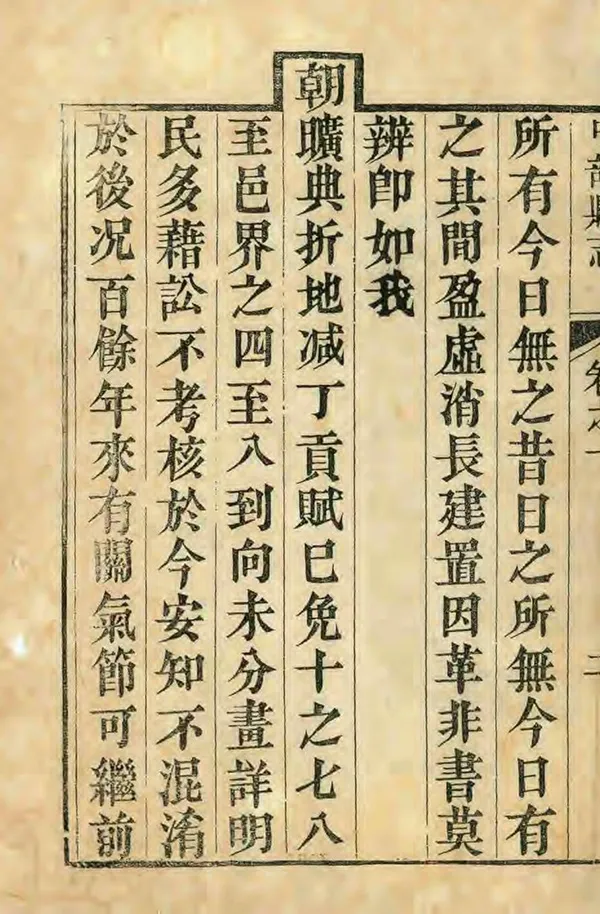 中部縣志
卷之一
二
所有今日無之昔日之所無今日有
之其間盈虛消長建置因革非書莫
辨卽如我
朝曠典折地减丁貢賦已免十之七八
至邑界之四至八到向未分畫詳明
民多藉訟不考核於今安知不混淆
於後况百餘年來有關氣節可繼前